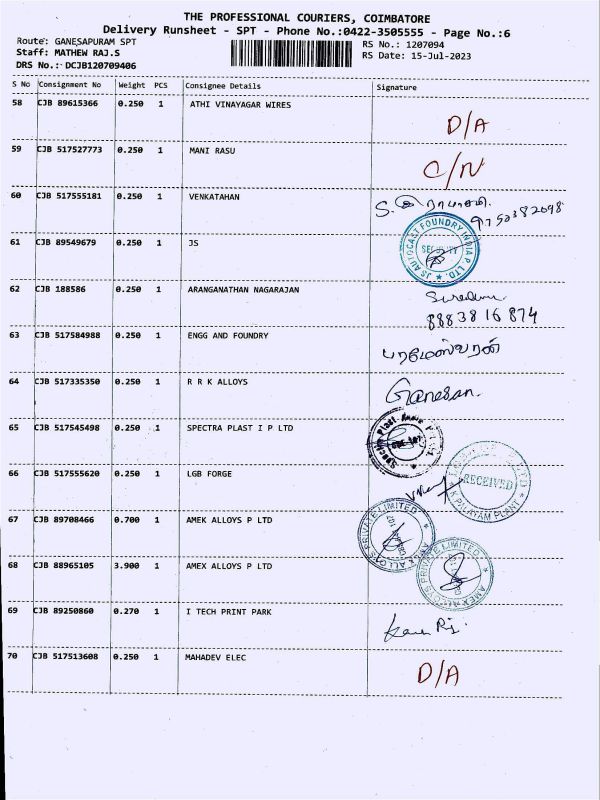 THE PROFESSIONAL COURIERS, COIMBATORE
Delivery Runsheet - SPT - Phone No.:0422-3505555 - Page No.:6
Route: GANESAPURAM SPT
Staff: MATHEW RAJ.S
DRS No.: DCJB120709406
RS No.: 1207094
RS Date: 15-Jul-2023
S No Consignment No Weight PCS Consignee Details Signature
58 CJB 89615366 0.250 1 ATHI VINAYAGAR WIRES
D/A
59 CJB 517527773 0.250 1 MANI RASU
C/N
60 CJB 517555181 0.250 1 VENKATAHAN
9750382698
61 CJB 89549679 0.250 1 JS
JS AUTOCAST FOUNDRY INDIA P. LTD.
SECURITY
62 CJB 188586 0.250 1 ARANGANATHAN NAGARAJAN
8883816874
63 CJB 517584988 0.250 1 ENGG AND FOUNDRY
பரமேஸ்வரன்
64 CJB 517335350 0.250 1 R R K ALLOYS
Ganesan.
65 CJB 517545498 0.250 1 SPECTRA PLAST I P LTD
Spectra Plast
66 CJB 517555620 0.250 1 LGB FORGE
RECEIVED
K PALAYAM PLANT
67 CJB 89708466 0.700 1 AMEK ALLOYS P LTD
ALLOYS PRIVATE LIMITED
68 CJB 88965105 3.900 1 AMEX ALLOYS P LTD
AMEX ALLOYS PRIVATE LIMITED
69 CJB 89250860 0.270 1 I TECH PRINT PARK
70 CJB 517513608 0.250 1 MAHADEV ELEC
D/A